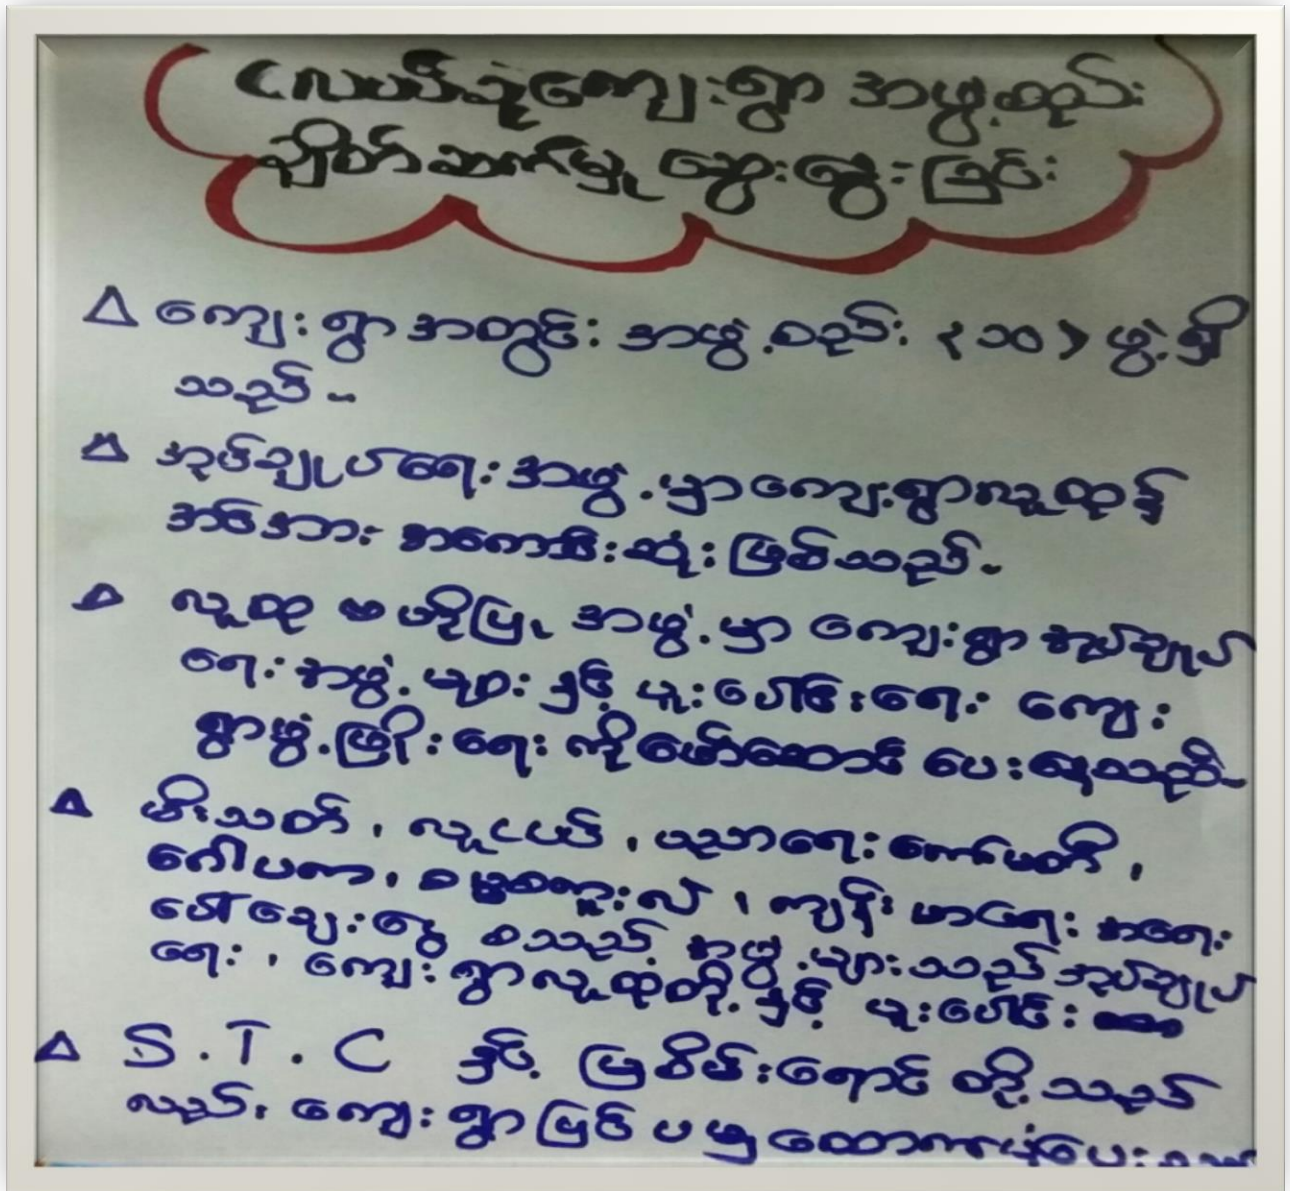 ကျေးရွာ အဖွဲ့စည်း
ချိတ်ဆက်မှု ဆွေးနွေးခြင်း
△ ကျေးရွာအတွင်း အဖွဲ့စည်း (၁၀) ဖွဲ့ရှိ
သည်-
△ အုပ်ချုပ်ရေးအဖွဲ့မှာကျေးရွာလူထုနှင့်
အင်အား အကောင်းဆုံးဖြစ်သည်-
△ လူထု ဗဟိုပြု အဖွဲ့မှာ ကျေးရွာ အုပ်ချုပ်
ရေးအဖွဲ့များနှင့် ပူးပေါင်းရေး ကျေး
ရွာဖွံ့ဖြိုးရေး ကိုဖော်ဆောင် ပေးနေသည်-
△ မီးသတ်၊ လူငယ်၊ ပညာရေးကော်မတီ၊
ဂေါပက၊ ကျန်းမာရေး အရေး
ပေါ်ချေးငွေ စသည့် အဖွဲ့များသည် အုပ်ချုပ်
ရေး၊ ကျေးရွာလူထုတို့နှင့် ပူးပေါင်း
△ S.T.C နှင့် မြစိမ်းရောင် တို့သည်
လည်း ကျေးရွာပြင်ပမှထောက်ပံ့ပေး